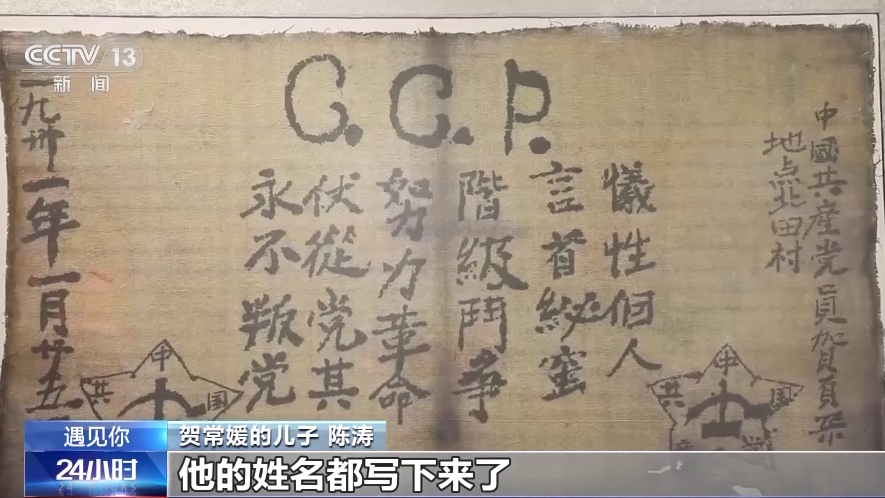 CCTV 13
新闻
C.C.P.
中國共產党員賀頁朵
地点北田村
犧性個人
言首秘蜜
階級鬥爭
努力革命
伏從党其
永不叛党
一九卅一年一月廿五
中
共
国
中
共
国
遇见你
24小时
贺常媛的儿子 陈涛
他的姓名都写下来了